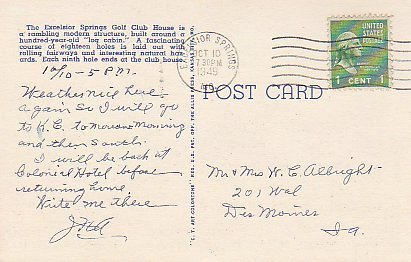 The Excelsior Springs Golf Club House is
a rambling modern structure, built around a
hundred-year-old "log cabin." A fascinating
course of eighteen holes is laid out with
rolling fairways and interesting natural haz-
ards. Each ninth hole ends at the club house.
10/10 - 5 P.M.
Weather mild here
again so I will go
to K.C. tomorrow morning
and then South.
I will be back at
Colonial Hotel before
returning home
Write me there
"C. T. ART-COLORTONE" REG. U.S. PAT. OFF.
EXCELSIOR SPRINGS
OCT 10
7 30 PM
1949
MO.
UNITED
STATES
POSTAGE
1 CENT 1
POST CARD
Mr & Mrs W. C. Albright
201
Des Moines
Ia.